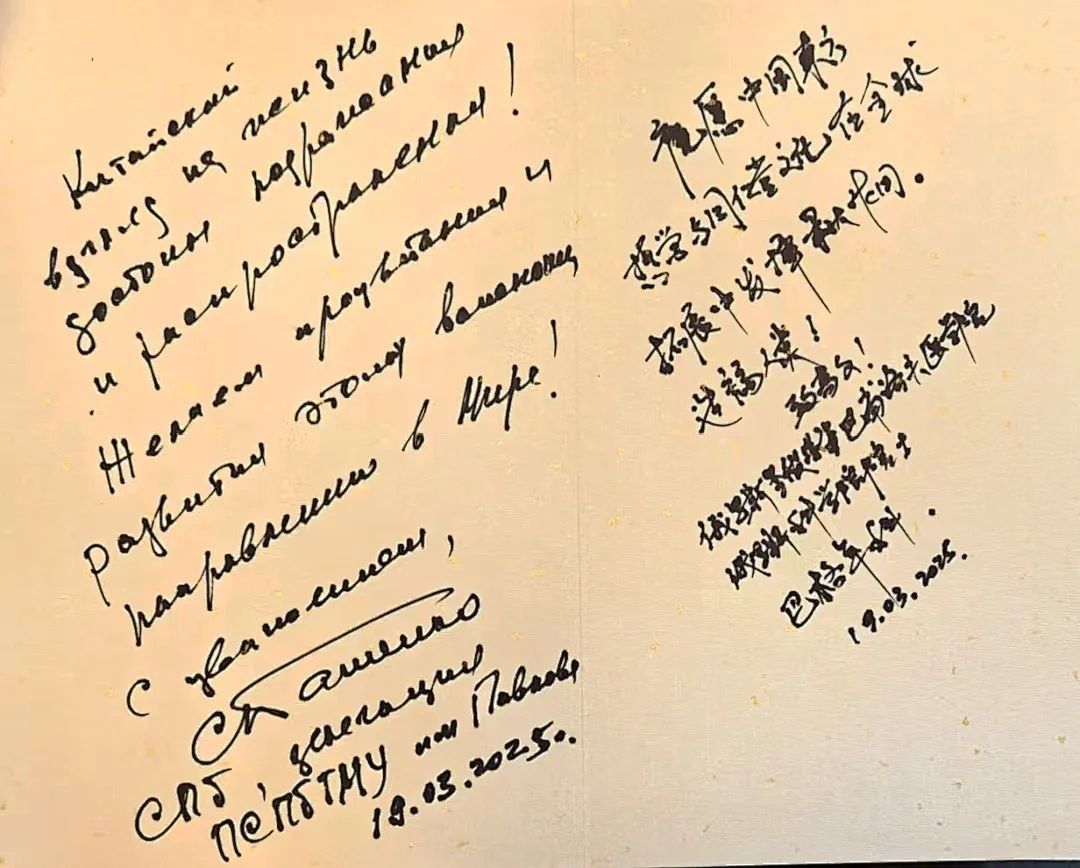 Китайский
взгляд на жизнь
достоин подражания
и распространения!
Желаем процветания и
развития этому важному
направлению в Мире!
С уважением,
СПб, делегация
ПСПбГМУ им Павлова
19.03.2025г.
祝愿中国东方
哲学与同仁堂文化在全球
拓展中发挥最大作用。
造福人类!
俄罗斯圣彼得堡巴甫洛夫医学院
俄罗斯科学院院士
巴格年科.
19.03.2025.